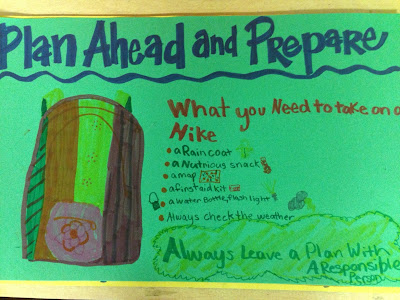 Plan Ahead and Prepare
What you Need to take on a
Hike
• a Raincoat
• a Nutrious snack
• a map
• a first aid kit
• a water Bottle, flash light
• Always check the weather
Always Leave a Plan With
A Responsible
Person